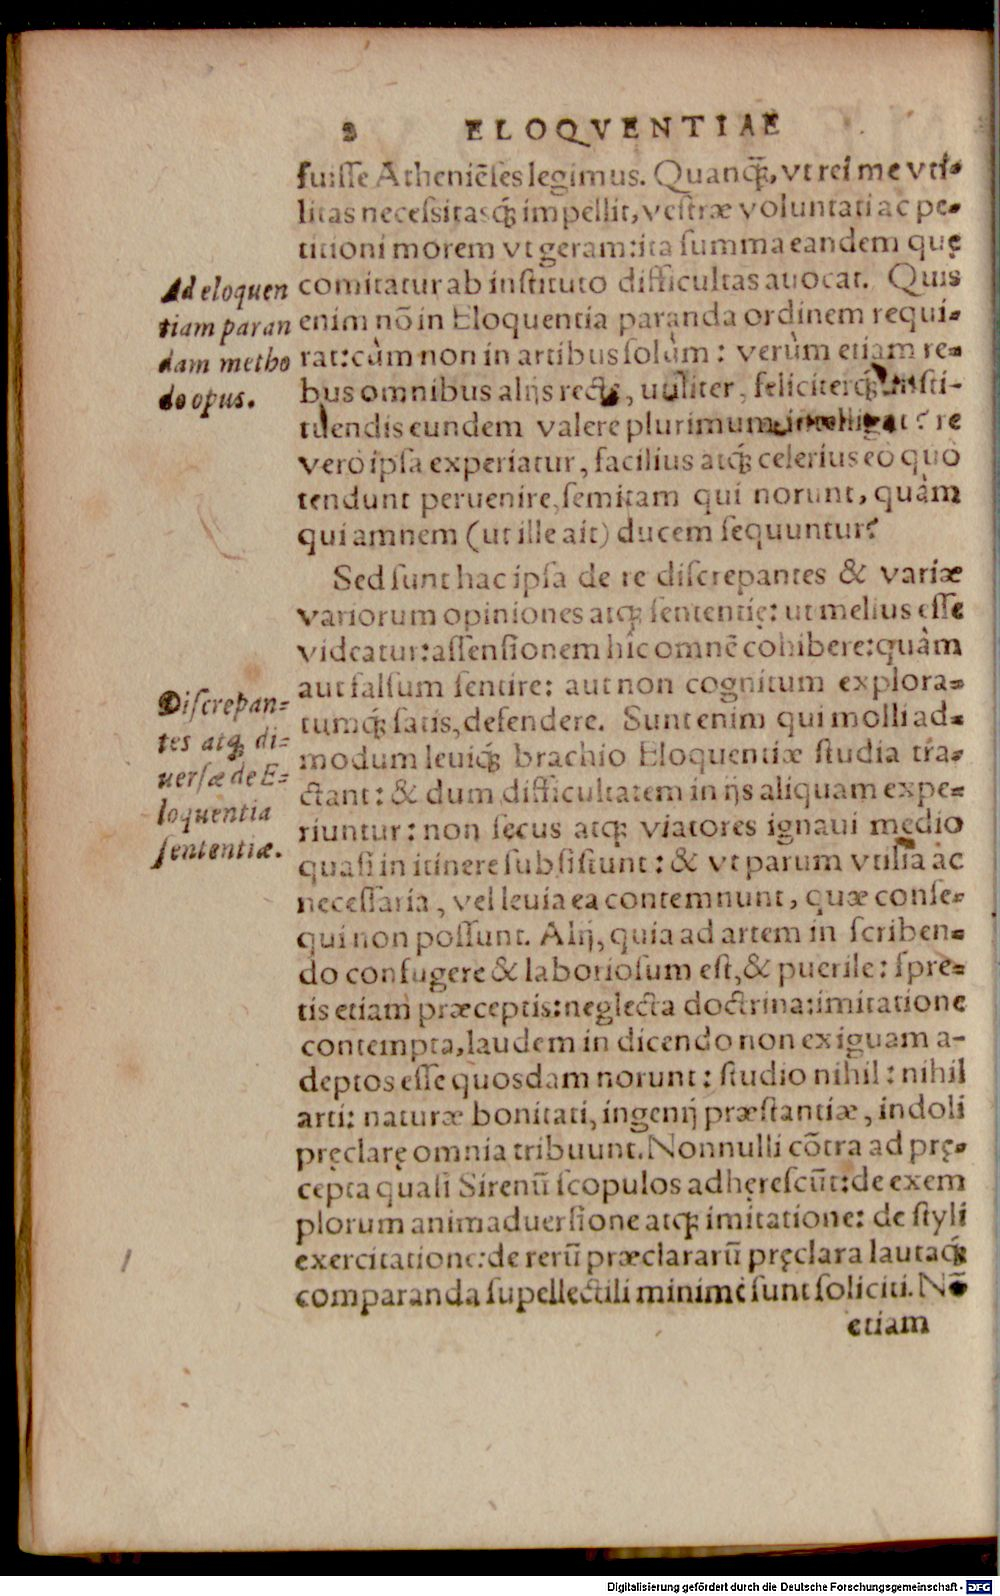 2 ELOQVENTIAE
fuiſſe Atheniēſes legimus. Quanq̃, vt rei me vti-
litas neceſsitasq́ impellit, veſtræ voluntati ac pe-
titioni morem vt geram: ita ſumma eandem quę
comitatur ab inſtituto difficultas auocat. Quis
enim nō in Eloquentia paranda ordinem requi-
rat: cùm non in artibus ſolùm: verùm etiam re-
bus omnibus alijs rectè, utiliter, feliciterq́ inſti-
tuendis eundem valere plurimum intelligat? re
vero ipſa experiatur, facilius atq́ celerius eò quò
tendunt peruenire, ſemitam qui norunt, quàm
qui amnem (ut ille ait) ducem ſequuntur?
Ad eloquen
tiam paran
dam metho
do opus.
Sed ſunt hac ipſa de re diſcrepantes & variæ
variorum opiniones atq; ſententię: ut melius eſſe
videatur: aſſenſionem hîc omnē cohibere: quàm
aut falſum ſentire: aut non cognitum explora-
tumq́ ſatis, defendere. Sunt enim qui molli ad-
modum leuiq́ brachio Eloquentiæ ſtudia tra-
ctant: & dum difficultatem in ijs aliquam expe-
riuntur: non ſecus atq; viatores ignaui medio
quaſi in itinere ſubſiſtunt: & vt parum vtilia ac
neceſſaria, vel leuia ea contemnunt, quæ conſe-
qui non poſſunt. Alij, quia ad artem in ſcriben-
do confugere & laborioſum eſt, & puerile: ſpre-
tis etiam præceptis: neglecta doctrina: imitatione
contempta, laudem in dicendo non exiguam a-
deptos eſſe quosdam norunt: ſtudio nihil: nihil
arti: naturæ bonitati, ingenij præſtantiæ, indoli
pręclarę omnia tribuunt. Nonnulli cōtra ad prę-
cepta quaſi Sirenū ſcopulos adhęreſcūt: de exem
plorum animaduerſione atq; imitatione: de ſtyli
exercitatione: de rerū præclararū pręclara lautaq́
comparanda ſupellectili minimè ſunt ſoliciti. Nō
Diſcrepan-
tes atq; di-
uerſæ de E-
loquentia
ſententiæ.
etiam
Digitalisierung gefördert durch die Deutsche Forschungsgemeinschaft - DFG